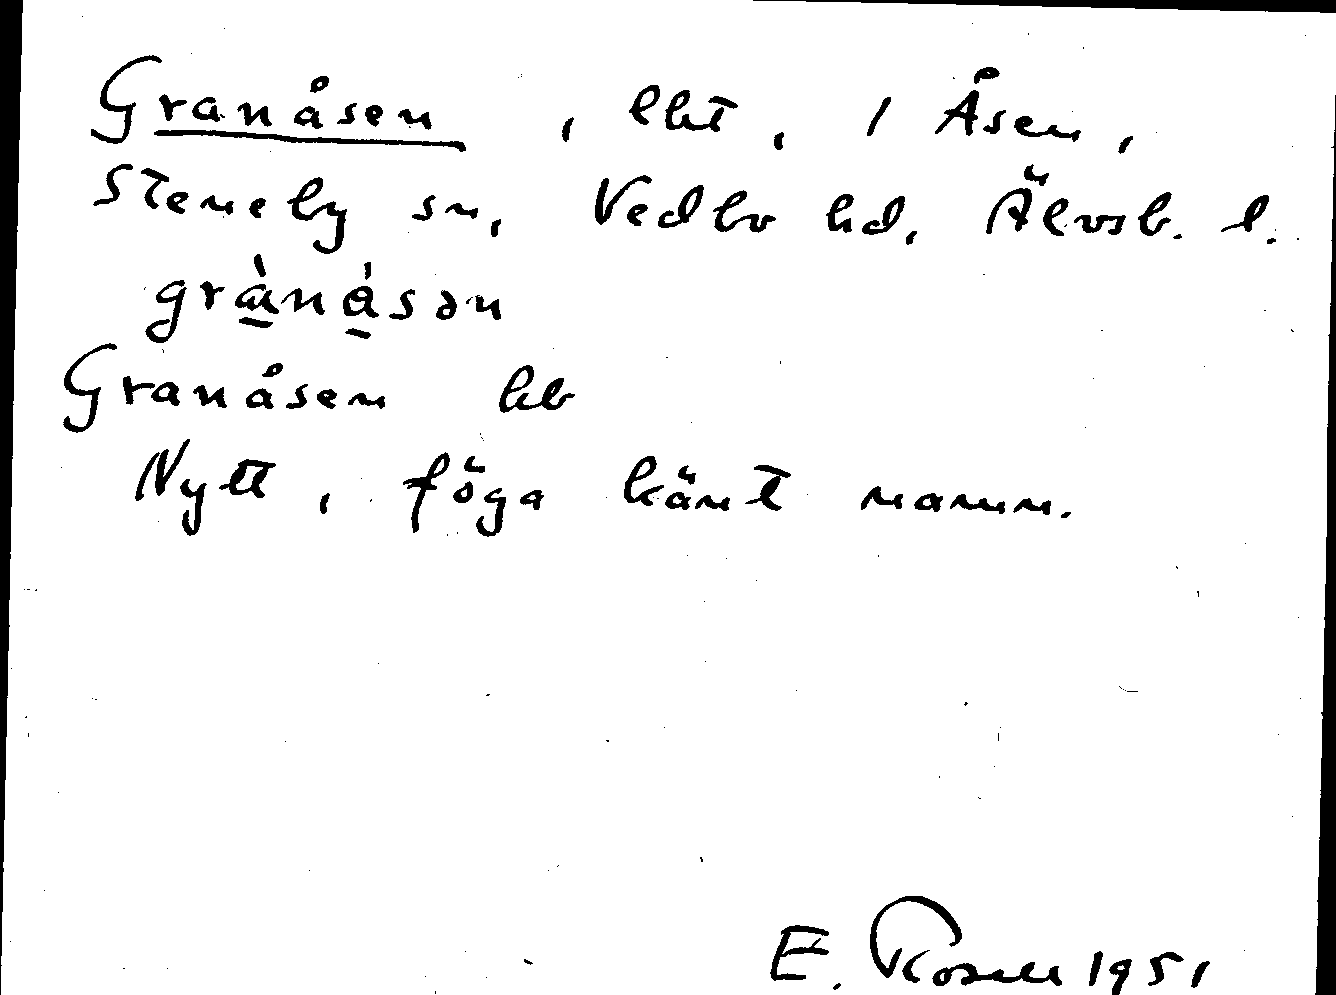 Granåsen, lht, 1 Åsen,
Steneby sn, Vedbo hd, Älvsb. l.
grànåsən
Granåsen hb
Nytt, föga känt namn.
E. Rosell 1951